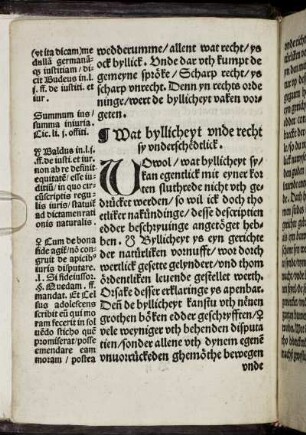 (vt ita dicam) me
dulla germanā
qȝ iustitian / di=
cit Budeus in.l.
j. ff. de iusti. et
iur.
Summum ius /
summa iniuria.
Cic. li. j. offiti.
Baldus in.l.j.
ff. de iusti. et iur.
non ab re definit
equitatē esse iu=
ditiū / in quo cir=
cūscriptis regu=
lis iuris / statuit
ad dictamen rati
onis naturalis.
Cum de bona
fide agit
iuris disputare.
.l. Si fideiussor.
.§. Quedam. ff.
mandat. Et Cel
sus adolescens
scribit eū qui mo
ram fecerit in sol
uēdo sticho quē
promiserat / posse
emendare eam
moram / postea
wedderumme / allent wat recht / ys
ock byllick. Unde dar vth kumpt de
gemeyne spröke / Scharp recht / ys
scharp vnrecht. Denn yn rechts orde
ninge / wert de byllicheyt vaken vor=
geten.
¶ Wat byllicheyt vnde recht
sy vnderschēdlick.
Wowol / wat byllicheyt sy /
kan egentlick mit eyner kor
ten sluthrede nicht vth ge=
drücket werden / so wil ick doch tho
etliker nakündinge / desse descriptien
edder beschryuinge angetöget heb=
ben. Byllicheyt ys eyn gerichte
der natürliken vornufft / wor dorch
wertlick gesette gelyndert / vnd thom
ördentliken leuende gestellet werth.
Orsake desser erklaringe ys apenbar.
Deñ de byllicheyt kanstu vth nēnen
grothen böken edder geschryfften /
vele weyniger vth behenden disputa
tien / sonder allene vth dynem egenē
vnuorrückeden ghemöthe bewegen
vnde